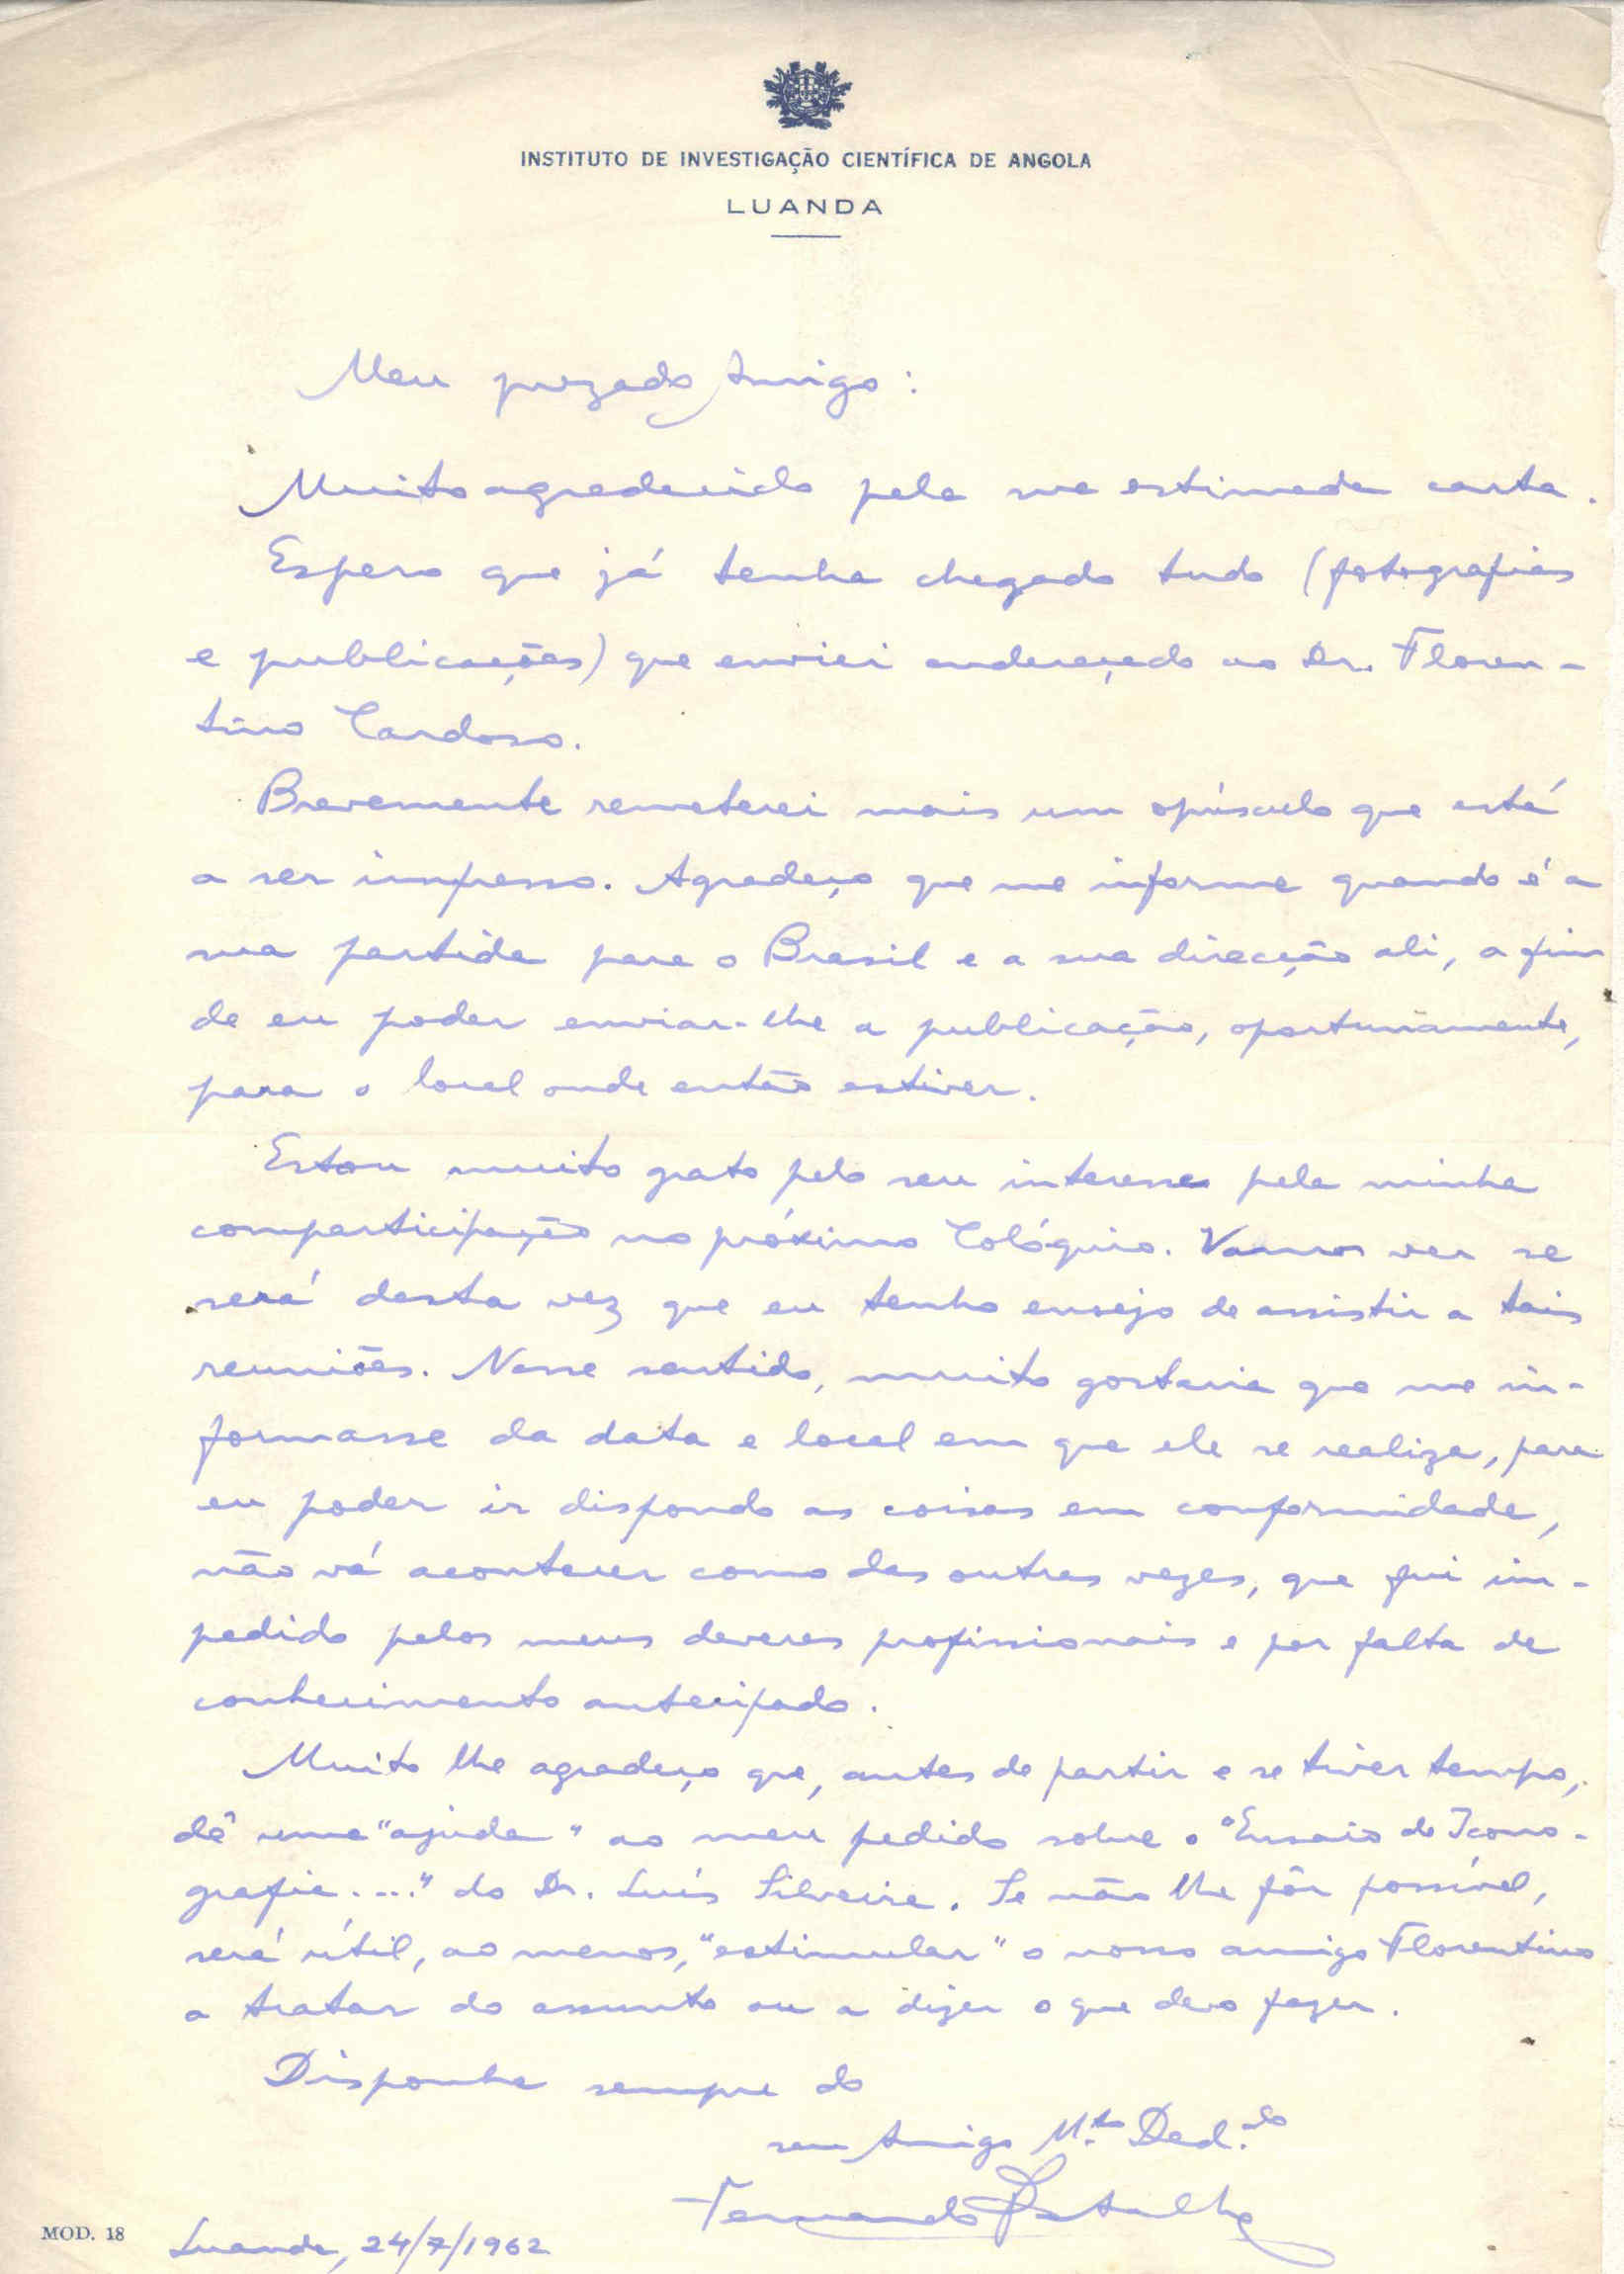 INSTITUTO DE INVESTIGAÇÃO CIENTÍFICA DE ANGOLA
LUANDA
Meu prezado Amigo:
Muito agradecido pela sua estimada carta.
Espero que já tenha chegado tudo (fotografias
e publicações) que enviei endereçado ao Dr. Floren-
tino Cardoso.
Brevemente remeterei mais um opúsculo que está
a ser impresso. Agradeço que me informe quando é a
sua partida para o Brasil e a sua direcção ali, a fim
de eu poder enviar-lhe a publicação, oportunamente,
para o local onde então estiver.
Estou muito grato pelo seu interesse pela minha
comparticipação no próximo Colóquio. Vamos ver se
será desta vez que eu tenho ensejo de assistir a tais
reuniões. Nesse sentido, muito gostaria que me in-
formasse da data e local em que ele se realiza, para
eu poder ir dispondo as coisas em conformidade,
não vá acontecer como das outras vezes, que fui im-
pedido pelos meus deveres profissionais e por falta de
conhecimento antecipado.
Muito lhe agradeço que, antes de partir e se tiver tempo,
dê uma "ajuda" ao meu pedido sobre o "Ensaio de Icono-
grafia...." do Dr. Luís Silveira. Se não lhe fôr possível,
será útil, ao menos, "estimular" o nosso amigo Florentino
a tratar do assunto ou a dizer o que devo fazer.
Disponha sempre do
seu Amigo M.to Ded.do
Fernando Batalha
MOD. 18
Luanda, 24/7/1962